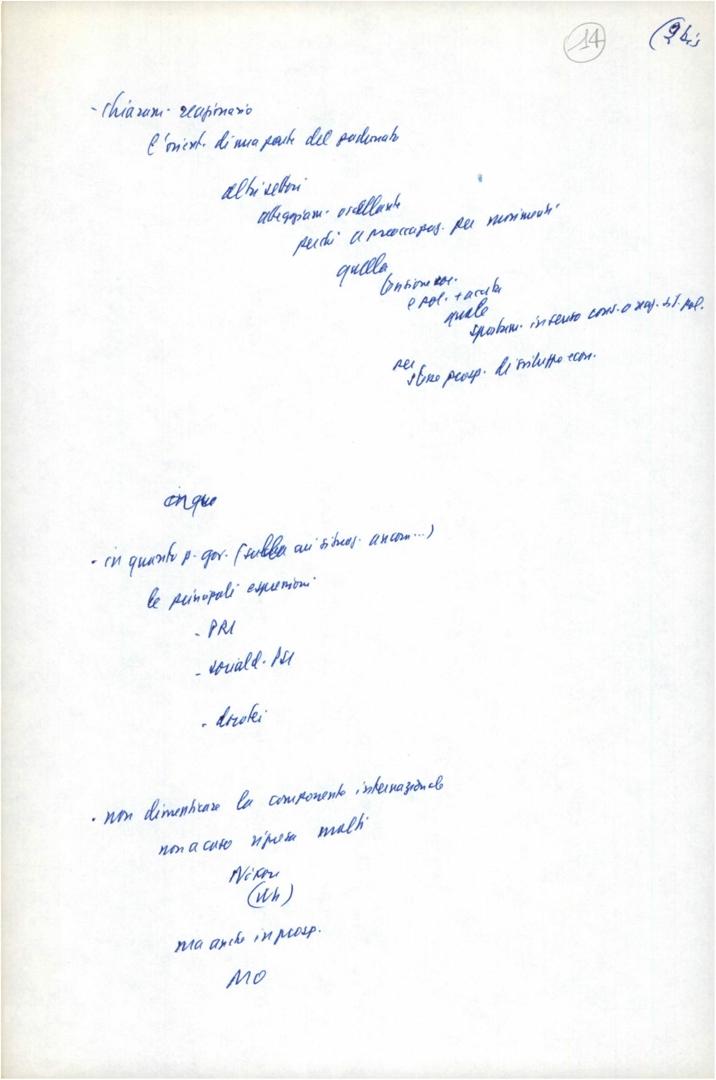 14
(9 bis
- chiaram. reazionario
è orient. di una parte del padronato
altri settori
atteggiam. oscillante
perché a preoccupaz. per movimenti
quella
tensione soc.
e pol. + acuta
quale
spostam. in senso cons. o reaz. sit. pol.
per
stesse prosp. di sviluppo econ.
cinque
- in quanto p. gov. ( ancora...)
le principali espressioni
- PRI
- sociald. PSI
- dorotei
- non dimenticare la componente internazionale
non a caso ripresa
Nixon
ma anche in prosp.
MO